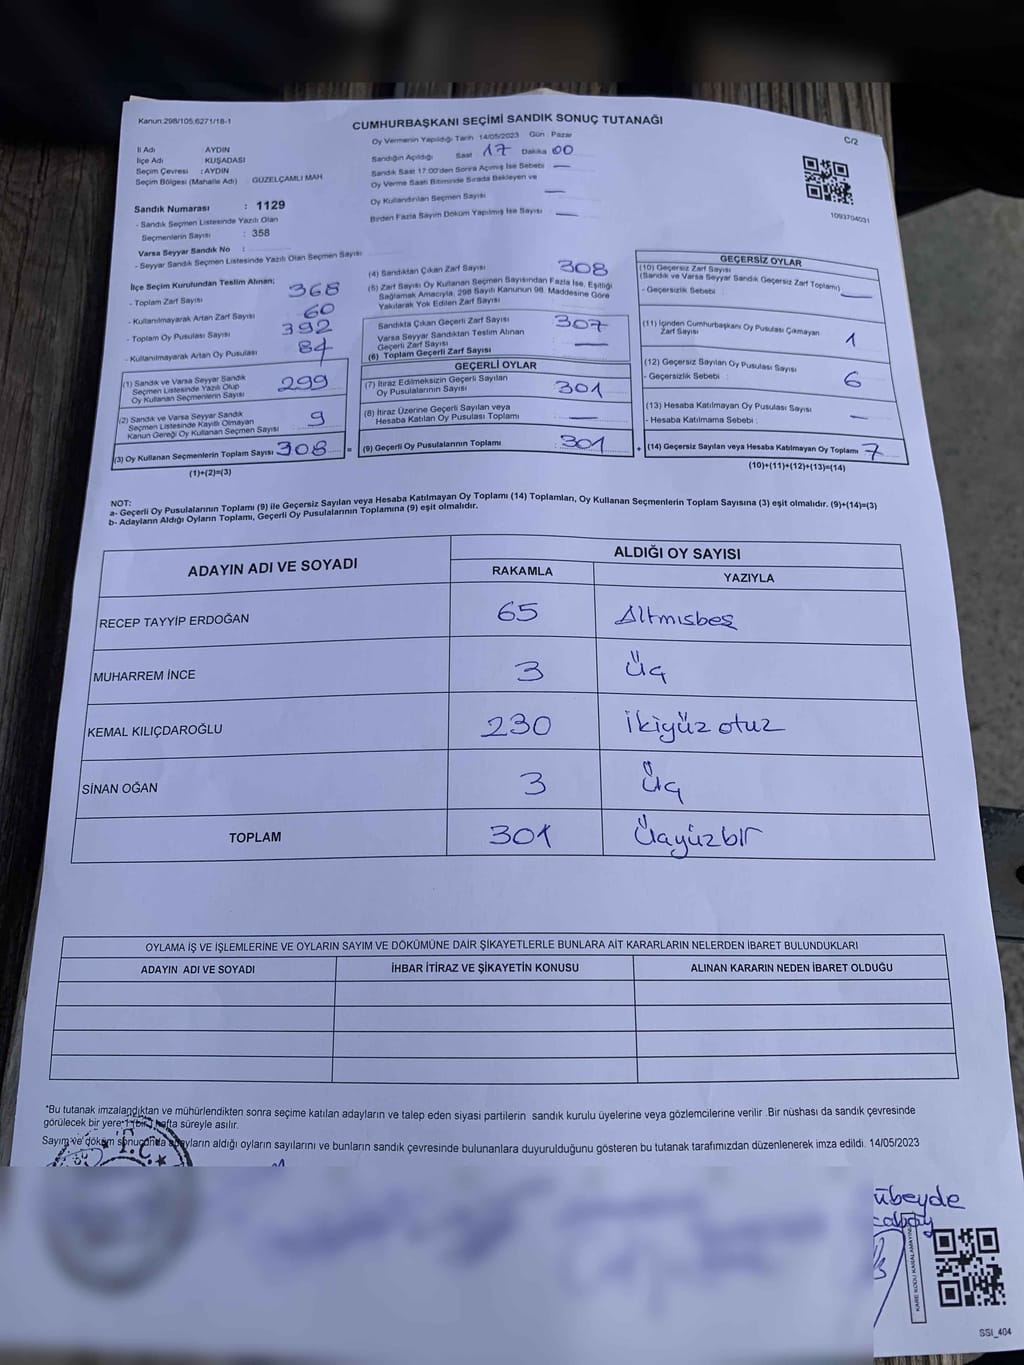 Kanun:298/105,6271/18-1
CUMHURBAŞKANI SEÇİMİ SANDIK SONUÇ TUTANAĞI
C/2
İl Adı AYDIN
İlçe Adı KUŞADASI
Seçim Çevresi : AYDIN
Seçim Bölgesi (Mahalle Adı) GÜZELÇAMLI MAH.
Sandık Numarası : 1129
- Sandık Seçmen Listesinde Yazılı Olan
Seçmenlerin Sayısı : 358
Varsa Seyyar Sandık No :
- Seyyar Sandık Seçmen Listesinde Yazılı Olan Seçmen Sayısı
Oy Vermenin Yapıldığı Tarih 14/05/2023 Gün : Pazar
Sandığın Açıldığı Saat 17 Dakika 00
Sandık Saat 17:00'den Sonra Açılmış İse Sebebi —
Oy Verme Saati Bitiminde Sırada Bekleyen ve
Oy Kullandırılan Seçmen Sayısı —
Birden Fazla Sayım Döküm Yapılmış İse Sayısı —
1093704031
İlçe Seçim Kurulundan Teslim Alınan;
- Toplam Zarf Sayısı 368
- Kullanılmayarak Artan Zarf Sayısı 60
- Toplam Oy Pusulası Sayısı 392
- Kullanılmayarak Artan Oy Pusulası 84
(1) Sandık ve Varsa Seyyar Sandık
Seçmen Listesinde Yazılı Olup
Oy Kullanan Seçmenlerin Sayısı 299
(2) Sandık ve Varsa Seyyar Sandık
Seçmen Listesinde Kayıtlı Olmayan
Kanun Gereği Oy Kullanan Seçmen Sayısı 9
(3) Oy Kullanan Seçmenlerin Toplam Sayısı 308
(1)+(2)=(3)
(4) Sandıktan Çıkan Zarf Sayısı 308
(5) Zarf Sayısı Oy Kullanan Seçmen Sayısından Fazla İse, Eşitliği
Sağlamak Amacıyla, 298 Sayılı Kanunun 98. Maddesine Göre
Yakılarak Yok Edilen Zarf Sayısı
Sandıkta Çıkan Geçerli Zarf Sayısı 307
Varsa Seyyar Sandıktan Teslim Alınan
Geçerli Zarf Sayısı —
(6) Toplam Geçerli Zarf Sayısı
GEÇERLİ OYLAR
(7) İtiraz Edilmeksizin Geçerli Sayılan
Oy Pusulalarının Sayısı 301
(8) İtiraz Üzerine Geçerli Sayılan veya
Hesaba Katılan Oy Pusulası Toplamı —
= (9) Geçerli Oy Pusulalarının Toplamı : 301 +
GEÇERSİZ OYLAR
(10) Geçersiz Zarf Sayısı
(Sandık ve Varsa Seyyar Sandık Geçersiz Zarf Toplamı) —
- Geçersizlik Sebebi :
(11) İçinden Cumhurbaşkanı Oy Pusulası Çıkmayan
Zarf Sayısı 1
(12) Geçersiz Sayılan Oy Pusulası Sayısı
- Geçersizlik Sebebi : 6
(13) Hesaba Katılmayan Oy Pusulası Sayısı —
- Hesaba Katılmama Sebebi :
(14) Geçersiz Sayılan veya Hesaba Katılmayan Oy Toplamı 7
(10)+(11)+(12)+(13)=(14)
NOT:
a- Geçerli Oy Pusulalarının Toplamı (9) ile Geçersiz Sayılan veya Hesaba Katılmayan Oy Toplamı (14) Toplamları, Oy Kullanan Seçmenlerin Toplam Sayısına (3) eşit olmalıdır. (9)+(14)=(3)
b- Adayların Aldığı Oyların Toplamı, Geçerli Oy Pusulalarının Toplamına (9) eşit olmalıdır.
ADAYIN ADI VE SOYADI ALDIĞI OY SAYISI
RAKAMLA YAZIYLA
RECEP TAYYİP ERDOĞAN 65 Altmışbeş
MUHARREM İNCE 3 Üç
KEMAL KILIÇDAROĞLU 230 İkiyüz otuz
SİNAN OĞAN 3 Üç
TOPLAM 301 Üçyüzbir
OYLAMA İŞ VE İŞLEMLERİNE VE OYLARIN SAYIM VE DÖKÜMÜNE DAİR ŞİKAYETLERLE BUNLARA AİT KARARLARIN NELERDEN İBARET BULUNDUKLARI
ADAYIN ADI VE SOYADI İHBAR İTİRAZ VE ŞİKAYETİN KONUSU ALINAN KARARIN NEDEN İBARET OLDUĞU
*Bu tutanak imzalandıktan ve mühürlendikten sonra seçime katılan adayların ve talep eden siyasi partilerin sandık kurulu üyelerine veya gözlemcilerine verilir .Bir nüshası da sandık çevresinde
görülecek bir yere 1 (bir) hafta süreyle asılır.
Sayım ve döküm sonucunda adayların aldığı oyların sayılarını ve bunların sandık çevresinde bulunanlara duyurulduğunu gösteren bu tutanak tarafımızdan düzenlenerek imza edildi. 14/05/2023
T.C.
übeyde
KARE KODU KARALAMAYINIZ
SSI_404